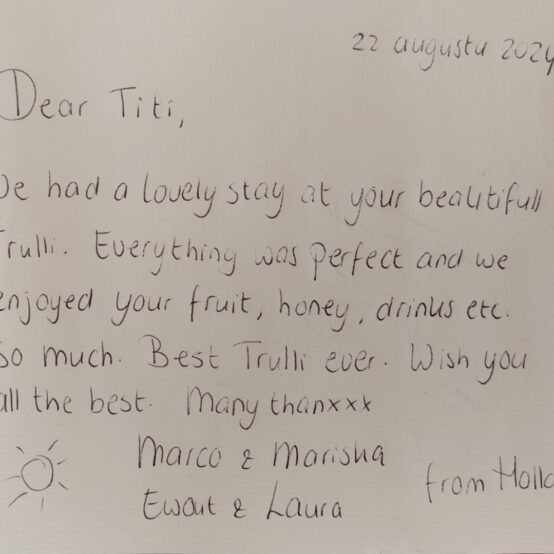 22 augustu 2024
Dear Titi,
We had a lovely stay at your beautifull
Trulli. Everything was perfect and we
enjoyed your fruit, honey, drinks etc.
so much. Best Trulli ever. Wish you
all the best. Many thanxxx
Marco & Marisha
Ewout & Laura
from Holla